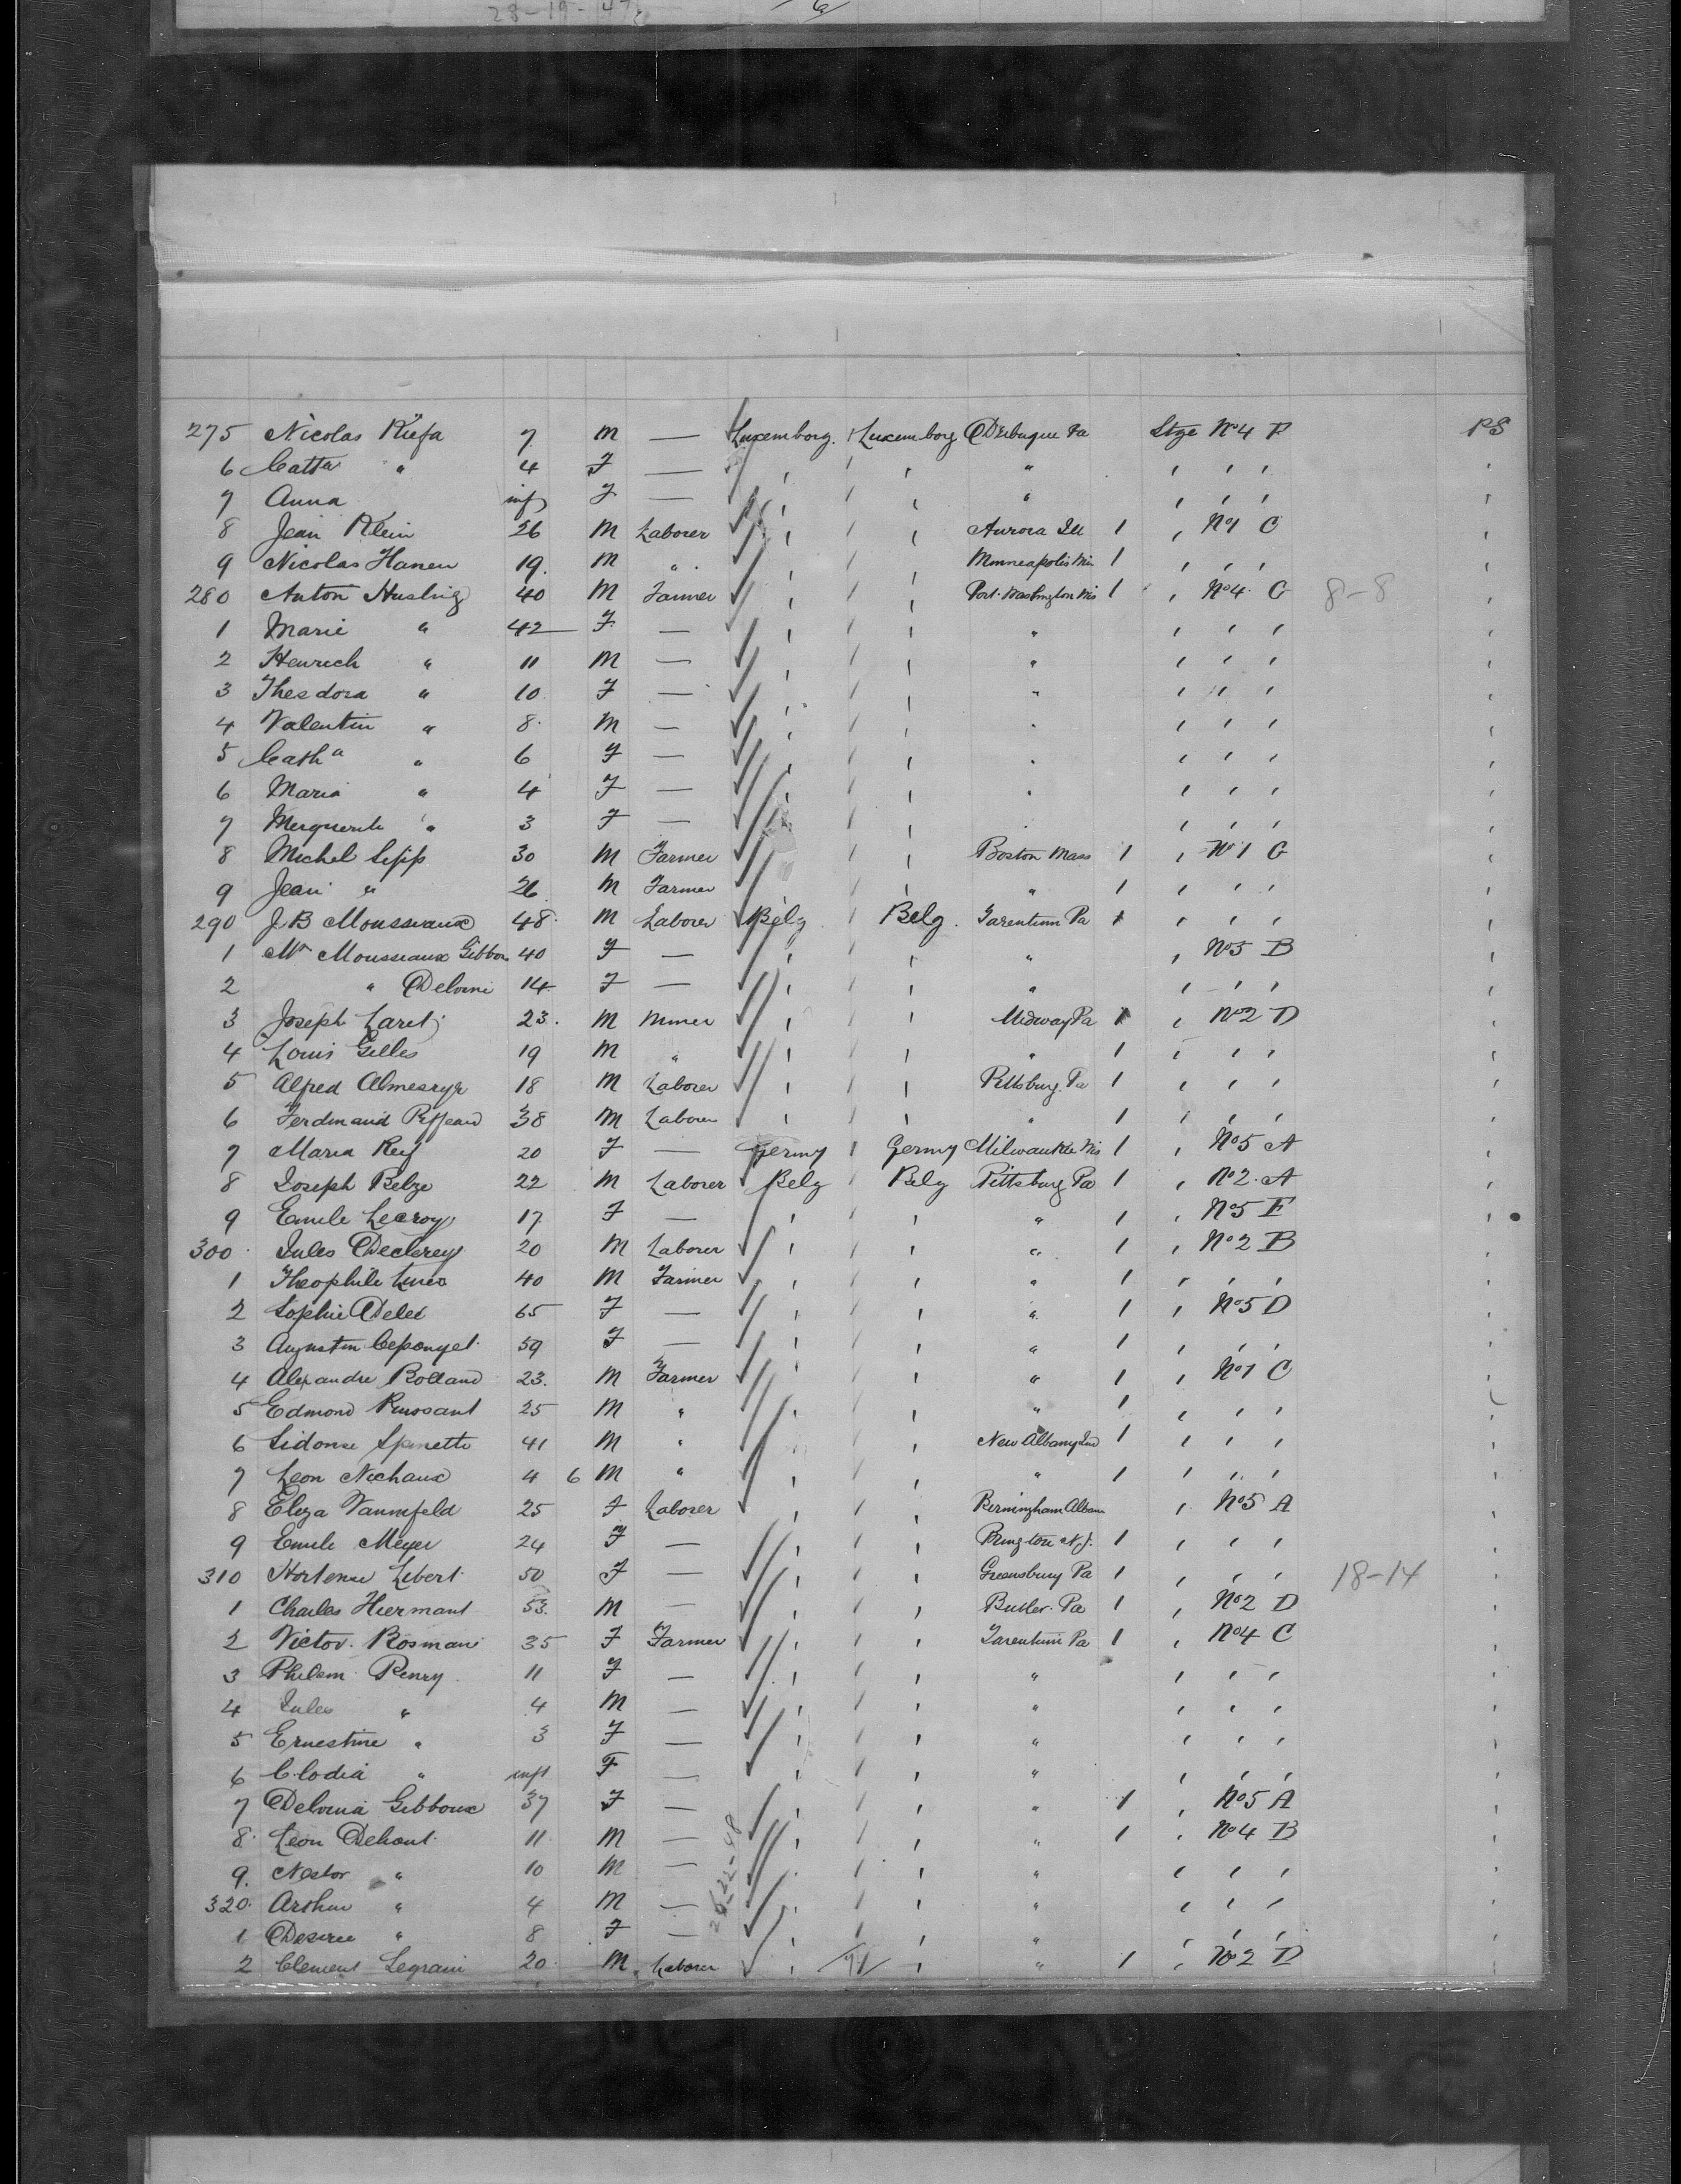 28-19-47
275 Nicolas Kiefa 7 M — Luxemborg. 1 Luxemborg Debuque Ia Stge No 4 F PS
6 Catta " 4 F — ' ' ' " ' ' '
7 Anna inf F — ' ' ' " ' ' '
8 Jean Klein 26 M Laborer ' ' ' Aurora Ill 1 ' No 1 C
9 Nicolas Hanen 19. M " ' ' ' Minneapolis Min 1 ' ' '
280 Anton Husting 40 M Farmer ' ' ' Port Washington Wis 1 ' No 4 G 8-8
1 Marie " 42 F — ' ' ' " ' ' '
2 Henrich " 11 M — ' ' ' " ' ' '
3 Thesdora " 10 F — ' ' ' " ' ' '
4 Valentin " 8 M — ' ' ' " ' ' '
5 Catha " 6 F — ' ' ' " ' ' '
6 Maria " 4 F — ' ' ' " ' ' '
7 Merguerite " 3 F — ' ' ' ' ' '
8 Michel 30 M Farmer ' ' Boston Mass 1 ' No 1 G
9 Jean " 26 M Farmer ' ' ' " 1 ' ' '
290 J B Mousseaux 48 M Laborer Belg ' Belg. Tarentum Pa 1 ' ' '
1 Mr Mousseaux Gibbon 40 F — ' ' ' " ' No 5 B
2 " Delvini 14 F — ' ' ' " ' ' '
3 Joseph Laret 23. M Miner ' ' ' Midway Pa 1 ' No 2 D
4 Louis Gilles 19 M " ' ' ' " 1 ' ' '
5 Alfred 18 M Laborer ' ' ' Pittsburg. Pa 1 ' ' '
6 Ferdinand 38 M Laborer ' ' ' " 1 ' ' '
7 Maria Reif 20 F — Germy 1 Germy Milwaukee Wis 1 ' No 5 A
8 Joseph Belge 22 M Laborer Belg Belg Pittsburg Pa 1 ' No 2 A
9 Emile Lecroy 17 F — ' ' ' " 1 ' No 5 F
300 Jules Declerey 20 M Laborer ' ' ' " 1 ' No 2 B
1 Theophile 40 M Farmer ' ' ' " 1 ' ' '
2 Sophie Delet 65 F — ' ' ' " 1 ' No 5 D
3 Augustin 59 F — ' ' ' " 1 ' ' '
4 Alexandre Rolland 23. M Farmer ' ' ' " 1 ' No 1 C
5 Edmond 25 M " ' ' ' " 1 ' ' '
6 Sidonse Spinette 41 M " ' ' ' New Albany Ind 1 ' ' '
7 Leon Nichaux 4 6 M " ' ' ' " 1 ' ' '
8 Eliza Vannefeld 25 F Laborer ' ' ' Birmingham Albam ' No 5 A
9 Emile Meyer 24 F — ' ' ' N.J. 1 ' ' '
310 Hortense Libert 50 F — ' ' ' Greensburg Pa 1 ' ' ' 18-14
1 Charles Hiermant 53. M — ' ' ' Butler. Pa 1 ' No 2 D
2 Victor. Bosman 35 F Farmer ' ' ' Tarentum Pa 1 ' No 4 C
3 Philem Renry 11 F — ' ' ' " ' ' '
4 Jules " 4 M — ' ' ' " ' ' '
5 Ernestine " 3 F — ' ' ' " ' ' '
6 Clodia " inft F — ' ' ' " ' ' '
7 Delvina Gibboux 37 F — ' ' ' " 1 ' No 5 A
8. Leon Dehont 11 M — ' ' ' " 1 ' No 4 B
9. Nestor " 10 M — ' ' ' " ' ' '
320. Arthur " 4 M — ' ' ' " ' ' '
1 Desiree " 8 F — ' ' ' " ' ' '
2 Clement Legrain 20 M Laborer ' ' " 1 ' No 2 D